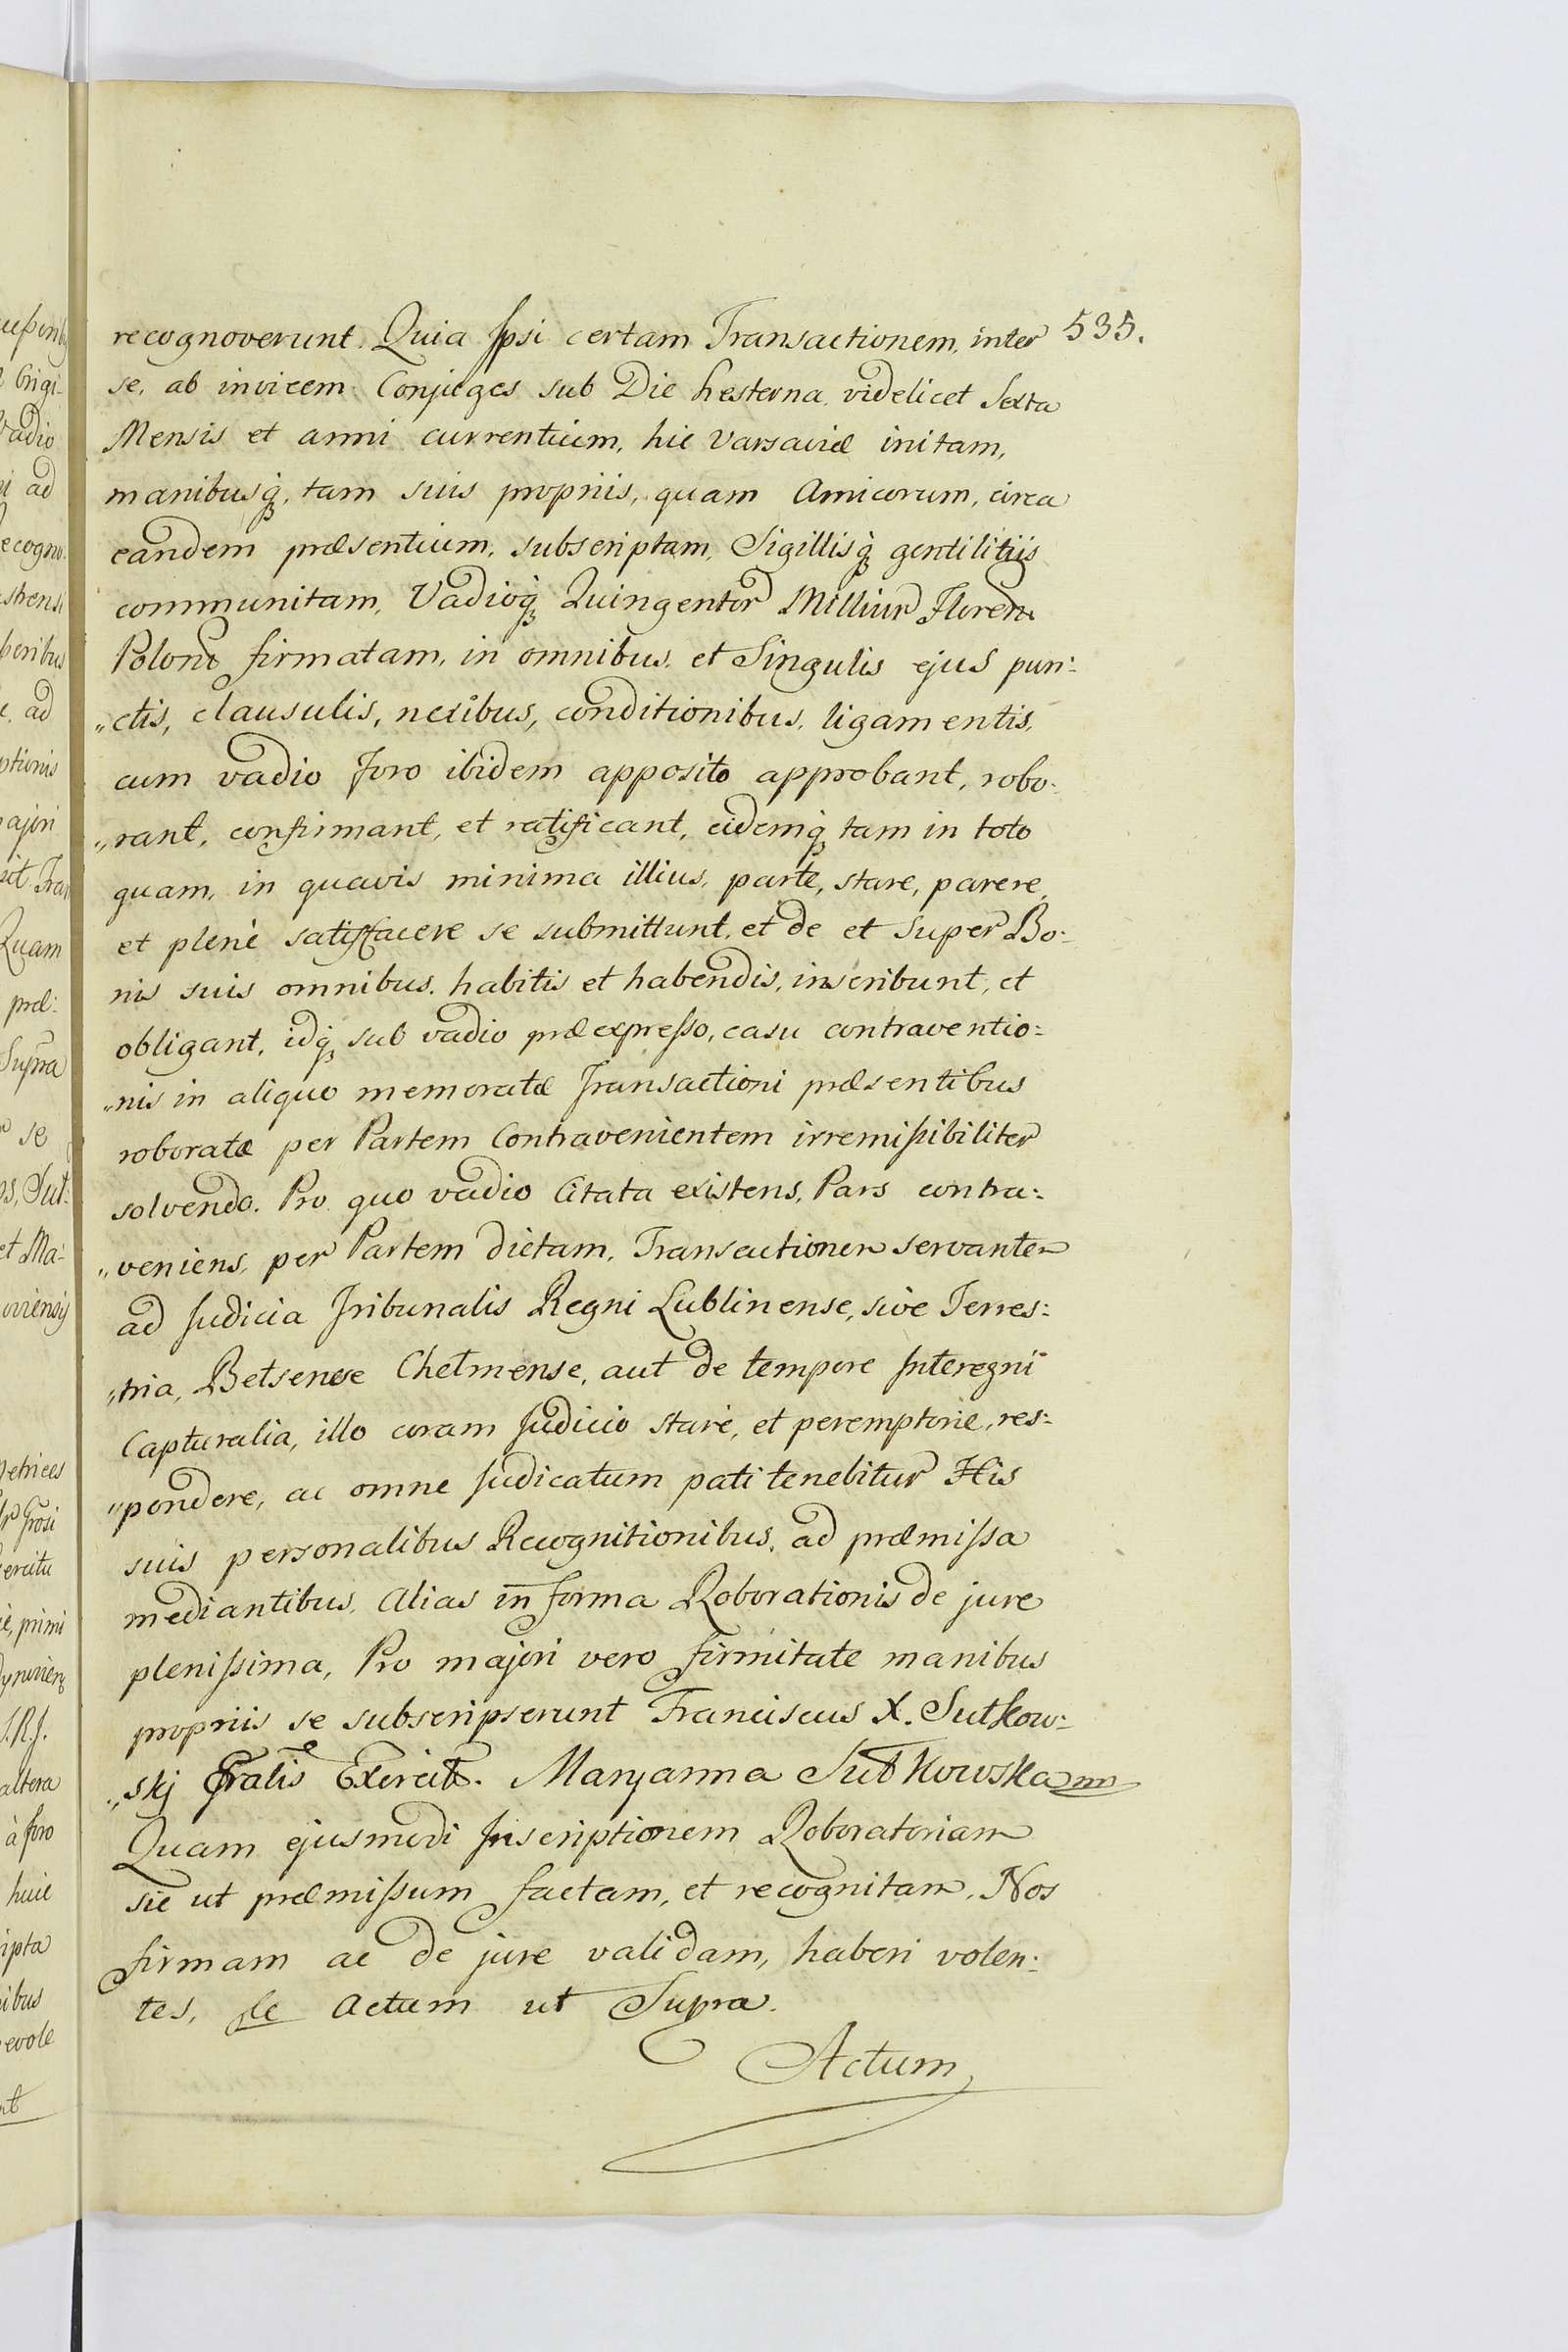 535.
recognoverunt. Quia Ipsi certam Transactionem, inter
se, ab invicem Conjuges sub Die hesterna videlicet Sexta
Mensis et anni currentium, hic Varsaviæ initam,
manibusq̃, tam suis propriis, quam Amicorum, circa
eandem præsentium, subscriptam, Sigillisq̃ gentilitiis
communitam, Vadioq̃ Quingentor Milliur Floren
Polonr firmatam, in omnibus et Singulis ejus pun:
„ctis, clausulis, nexibus, conditionibus, ligamentis,
cum vadio foro ibidem apposito approbant, robo:
„rant, confirmant, et ratificant, eidemq̃ tam in toto
quam, in quavis minima illius, parte, stare, parere,
et plenè satisfacere se submittunt, et de et Super Bo:
nis suis omnibus habitis et habendis, inscribunt, et
obligant, idq̃ sub vadio præexpresso, casu contraventio:
„nis in aliquo memoratæ Transactioni præsentibus
roboratæ per Partem Contravenientem irremissibiliter
solvendo. Pro quo vadio Citata existens, Pars contra:
„veniens, per Partem dictam, Transactionem servantem
ad Judicia Tribunalis Regni Lublinense, sive Terres:
„tria, Betsense Chełmense, aut de tempore Interegni
Capturalia, illo coram Judicio stare, et peremptorie, res:
„pondere, ac omne Judicatum pati tenebitur His
suis personalibus Recognitionibus, ad præmissa
mediantibus. Alias in forma Roborationis de jure
plenissima, Pro majori vero firmitate manibus
propriis se subscripserunt Franciscus X. Sułkow:
„skj Gralis Exercit. Maryanna Sułkowska mp
Quam ejusmodi Inscriptionem Roboratoriam
sic ut præmissum factam, et recognitam, Nos
firmam ac de jure validam, haberi volen:
tes, &c Actum ut Supra.
Actum